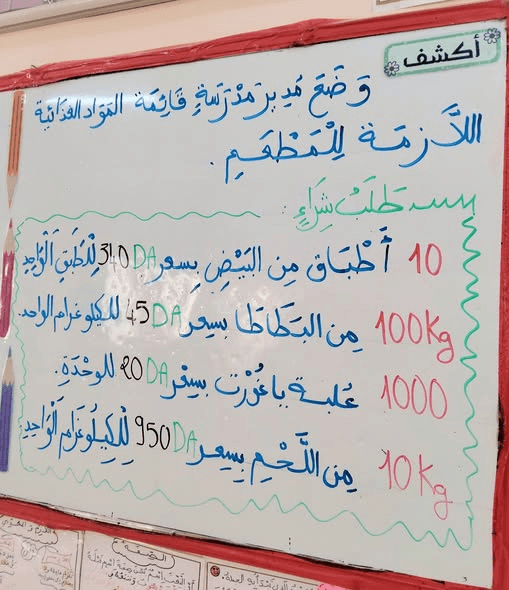 أكشف
وَضَعَ مُدِيرُ مَدْرَسَةٍ قَائِمَة المَوَادِ الغِذَائِيَّة
اللَّازِمَة لِلْمَطْعَمِ.
طَلَبُ شِرَاءٍ:
10 أَطْبَاق مِن البَيْضِ بِسعر 340DA لِلطَّبَقِ الْوَاحِدِ
100Kg مِن البَطَاطَا بِسعرِ 45DA للكيلوغرام الواحد
1000 عُلبة ياغُورْت بِسِعْر 20DA للوحْدَةِ.
10Kg مِن اللَّحْمِ بِسِعر 950DA لِلْكِيلُوغْرَامِ الْوَاحِدِ